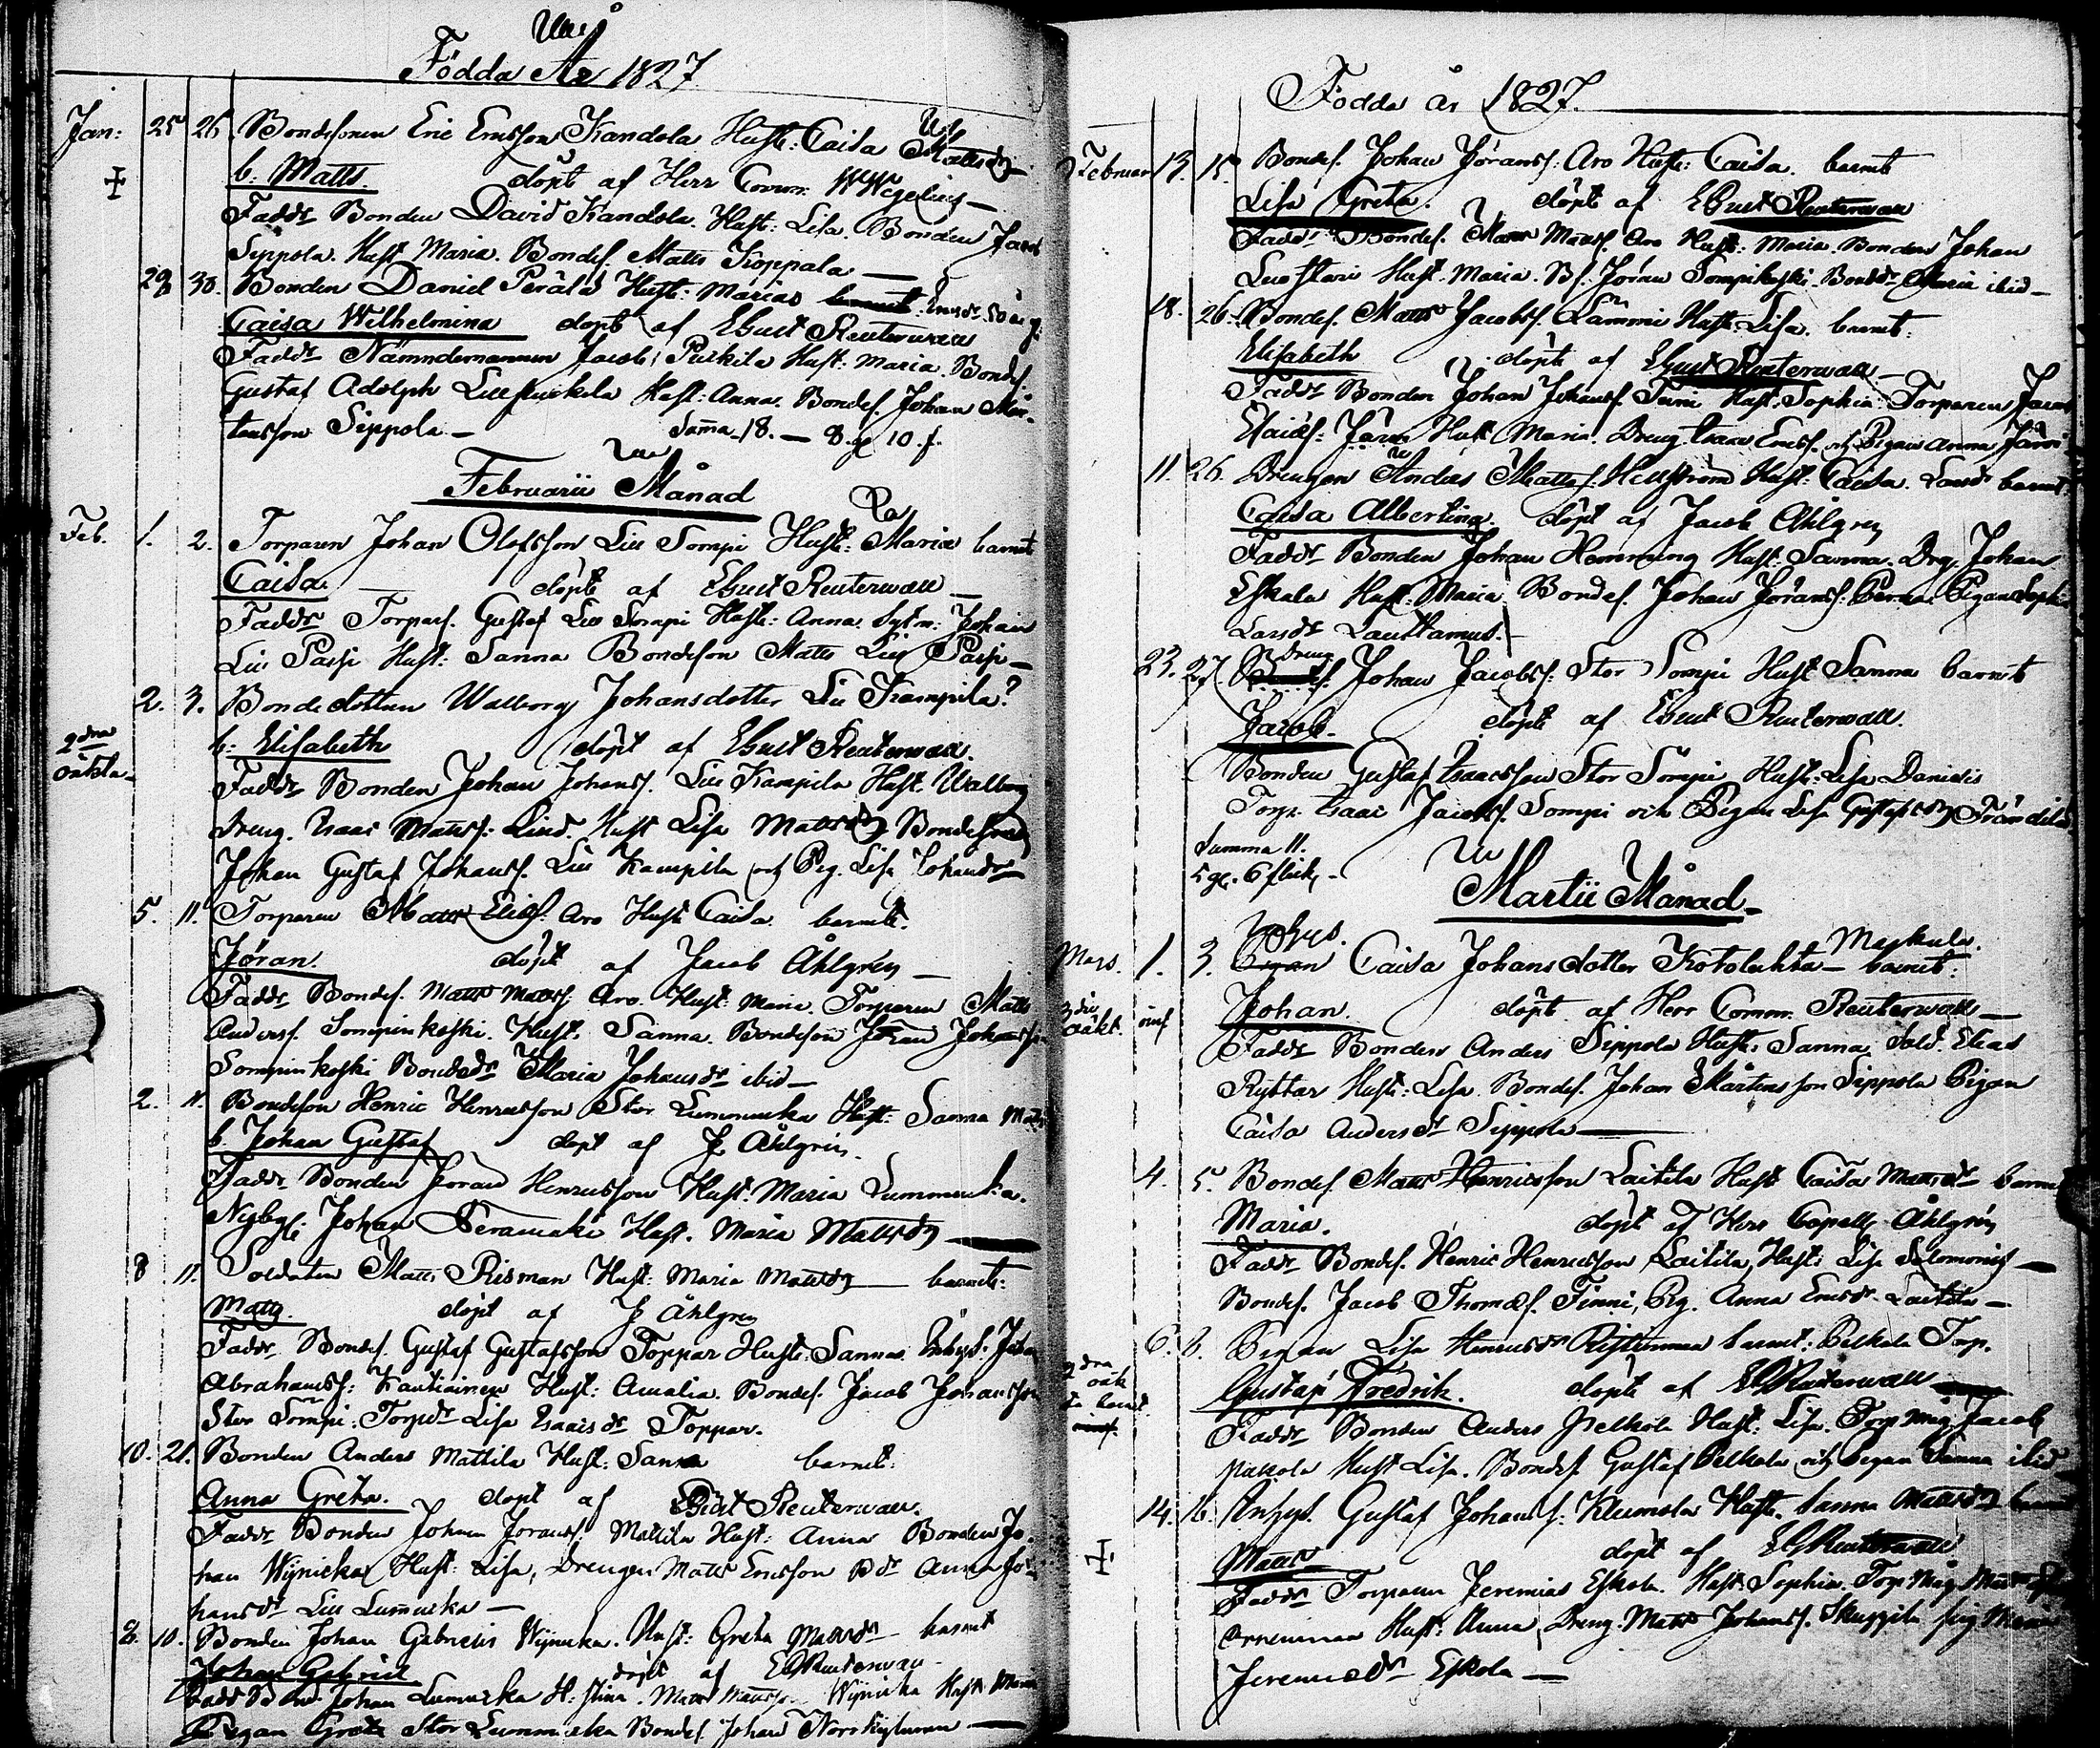 Födda År 1827
Jan: 25 26 Bondesonen Eric Ericsson Kandola Hust: Caisa Mattsdr
b: Matts. döpt af Herr Comm: W Wegelius
Faddr Bonden David Kandola. Hust: Lisa. Bonden Jacob
Sippola. Hust Maria. Bondes. Matts Koppala
29 30. Bonden Daniel Perälä Hust: Marias Ericsdr 50 år g:
Caisa Wilhelmina döpt af Ebust Reuterwall
Faddr Nämndemannen Jacob Purkila Hust: Maria. Bondes.
Gustaf Adolph Hust: Anna. Bondes. Johan Mår-
tensson Sippola. Sama 18. — 8. g 10. f.
Februarii Månad
Feb. 1. 2. Torparen Johan Olofsson Lill Sompi Hust: Maria barnet
Caisa. döpt af Ebust Reuterwall
Faddr Torpars. Gustaf Lill Sompi Hust: Anna. Sytm: Johan
Lill Passi Hust: Sanna Bondeson Matts Lill Passi
2. 3. Bondedottren Walborg Johansdotter Lill Kampila?
2dra oäkta b: Elisabeth döpt af Ebust Reuterwall.
Faddr Bonden Johan Johanss. Lill Kampila Hust. Walborg
dreng. Isaac Mattss: Lind. Hust Lisa Mattsdr Bondeson
Johan Gustaf Johanss. Lill Kampila och Pig. Lisa Johansdr
5. 11. Torparen Matts Eliæs: Aro Hust Caisa barnet.
Jöran. döpt af Jacob Åhlgren
Faddr Bondes. Matts Mattss. Aro. Hust: Maria. Torparen Matts
Anderss. Sompinkoski. Hust: Sanna. Bondeson Jöran Johanss:
Sompinkoski Bondedr Maria Johansdr ibid
2. 11. Bondeson Henric Henricsson Stor Lummukka Hust: Sanna Matts
b. Johan Gustaf döpt af J. Åhlgren.
Faddr Bonden Jöran Henricsson Hust: Maria Lummukka.
Nybyg: Johan Hust. Maria Mattsdr
8 11. Soldaten Matts Risman Hust: Maria Mattsdr barnet:
Matts. döpt af J. Åhlgren
Faddr. Bondes. Gustaf Gustafsson Toppar Hust: Sanna. Inhys: Johan
Abrahamss: Kautiainen Hust: Amalia. Bondes. Jacob Johansson
Stor Sompi. Torpdr Lisa Isaacsdr Toppar.
10. 21. Bonden Anders Mattila Hust: Sanna barnet:
Anna Greta. döpt af Ebust Reuterwall.
Faddr Bonden Johan Jöranss. Mattila Hust: Anna Bonden Jo-
han Wijnicka Hust: Lisa, Drengen Matts Ericsson Bdr Anna Jo-
hansdr Lill Lumucka
8. 10. Bonden Johan Gabrielss Wijnicka. Hust: Greta Mattsdr barnet
Johan Gabriel döpt af E G Reuterwall
Faddr Bd. Johan Lumucka H: Stina. Matts Mattsson Wijnicka Hust Maria
Pigan Greta Stor Lummucka Bondes. Johan
Födda år 1827.
Februar 13. 15. Bondes. Johan Jöranss: Aro Hust: Caisa. barnet
Lisa Greta. döpt af Ebust Reuterwall
Faddr Bondes. Matts Mattss. Aro Hust: Maria. Bonden Johan
Hust. Maria. Bs. Jöran Sompikoski. Bonddr Maria ibid
18. 26. Bondes. Matts Jacobss. Lammi Hust: Lisa. barnet:
Elisabeth döpt af Ebust Reuterwall
Faddr Bonden Johan Johanss. Hust: Sophia. Torparen Jacob
Eliæs: Järvi Hust Maria. Dreng. Isaac Ericss. och Pigan Anna Järvi
11. 26. Drengen Anders Mattss. Hellström Hust: Caisa. Larsdr barnet
Caisa Albertina. döpt af Jacob Åhlgren
Faddr Bonden Johan Hemming Hust: Sanna. Drg. Johan
Eskola Hust: Maria Bondes. Johan Jöranss: Pigan Sophia
Larsdr Lauttamus.
23. 27. dreng Johan Jacobss: Stor Sompi Hust Sanna barnet
Jacob. döpt af Ebust Reuterwall.
Bonden Gustaf Isaacsson Stor Sompi Hust: Lisa Danielsdr
Torp. Isaac Jacobss. Sompi och Pigan Lisa Gustafsdr
Summa 11.
5 g. 6 flick.
Martii Månad
Mars. 1. 3. Inhys. Caisa Johansdotter Kotolahta barnet: Markula.
3die oäkt. Johan. döpt af Herr Comm. Reuterwall
Faddr Bonden Anders Sippola Hust: Sanna. Sold. Elias
Ryttar Hust: Lisa. Bondes. Johan Mårtensson Sippola Pigan
Caisa Andersdr Sippola
4. 5. Bondes. Matts Henricsson Laitila Hust Caisa Mattsdr barnet
Maria. döpt af Herr Capell. Åhlgren
Faddr Bondes. Henric Henricsson Laitila, Hust: Lisa Salomonis
Bondes. Jacob Thomæs. Finni, Pig. Anna Ericsdr Laitila
6. 8. Pigan Lisa Henricsdr barnet: Pelkola Torp.
2dra oäkta barnet Gustaf Fredrik. döpt af E G Reuterwall
Faddr Bonden Anders Pelkola Hust: Lisa. Torp Måg Jacob
Hust Lisa. Bondes Gustaf Pelkola och Pigan Sanna ibid
14. 16. Inhys. Gustaf Johanss: Klemola Hust. Sanna Mattsdr barnet
Matts döpt af E G Reuterwall
Faddr Torparen Jeremias Eskola. Hust: Sophia. Torp Måg Matts
Hust: Anna, Dreng. Matts Johanss. Skuppila pig Maria
Jeremiædr Eskola